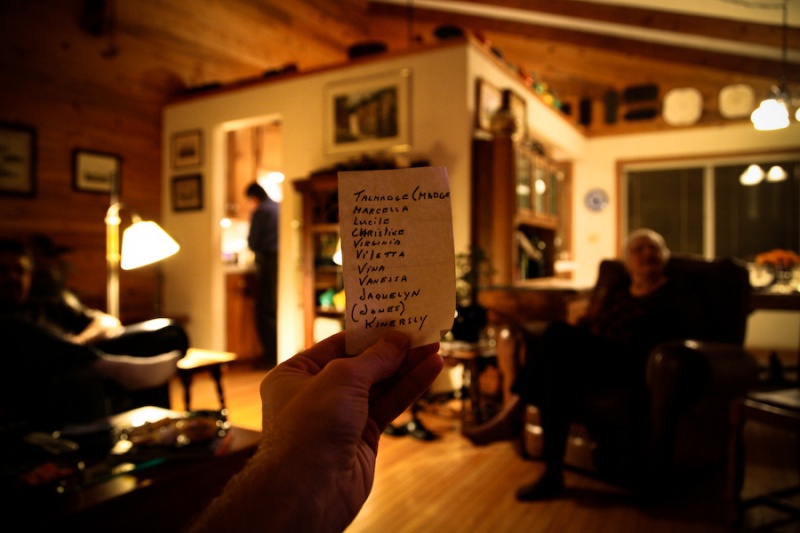 TALMADGE (MADGE
MARCELLA
LUCILE
CHRISTINE
VIRGINIA
VILETTA
VINA
VANESSA
JAQUELYN
(JONES)
KINERSLY